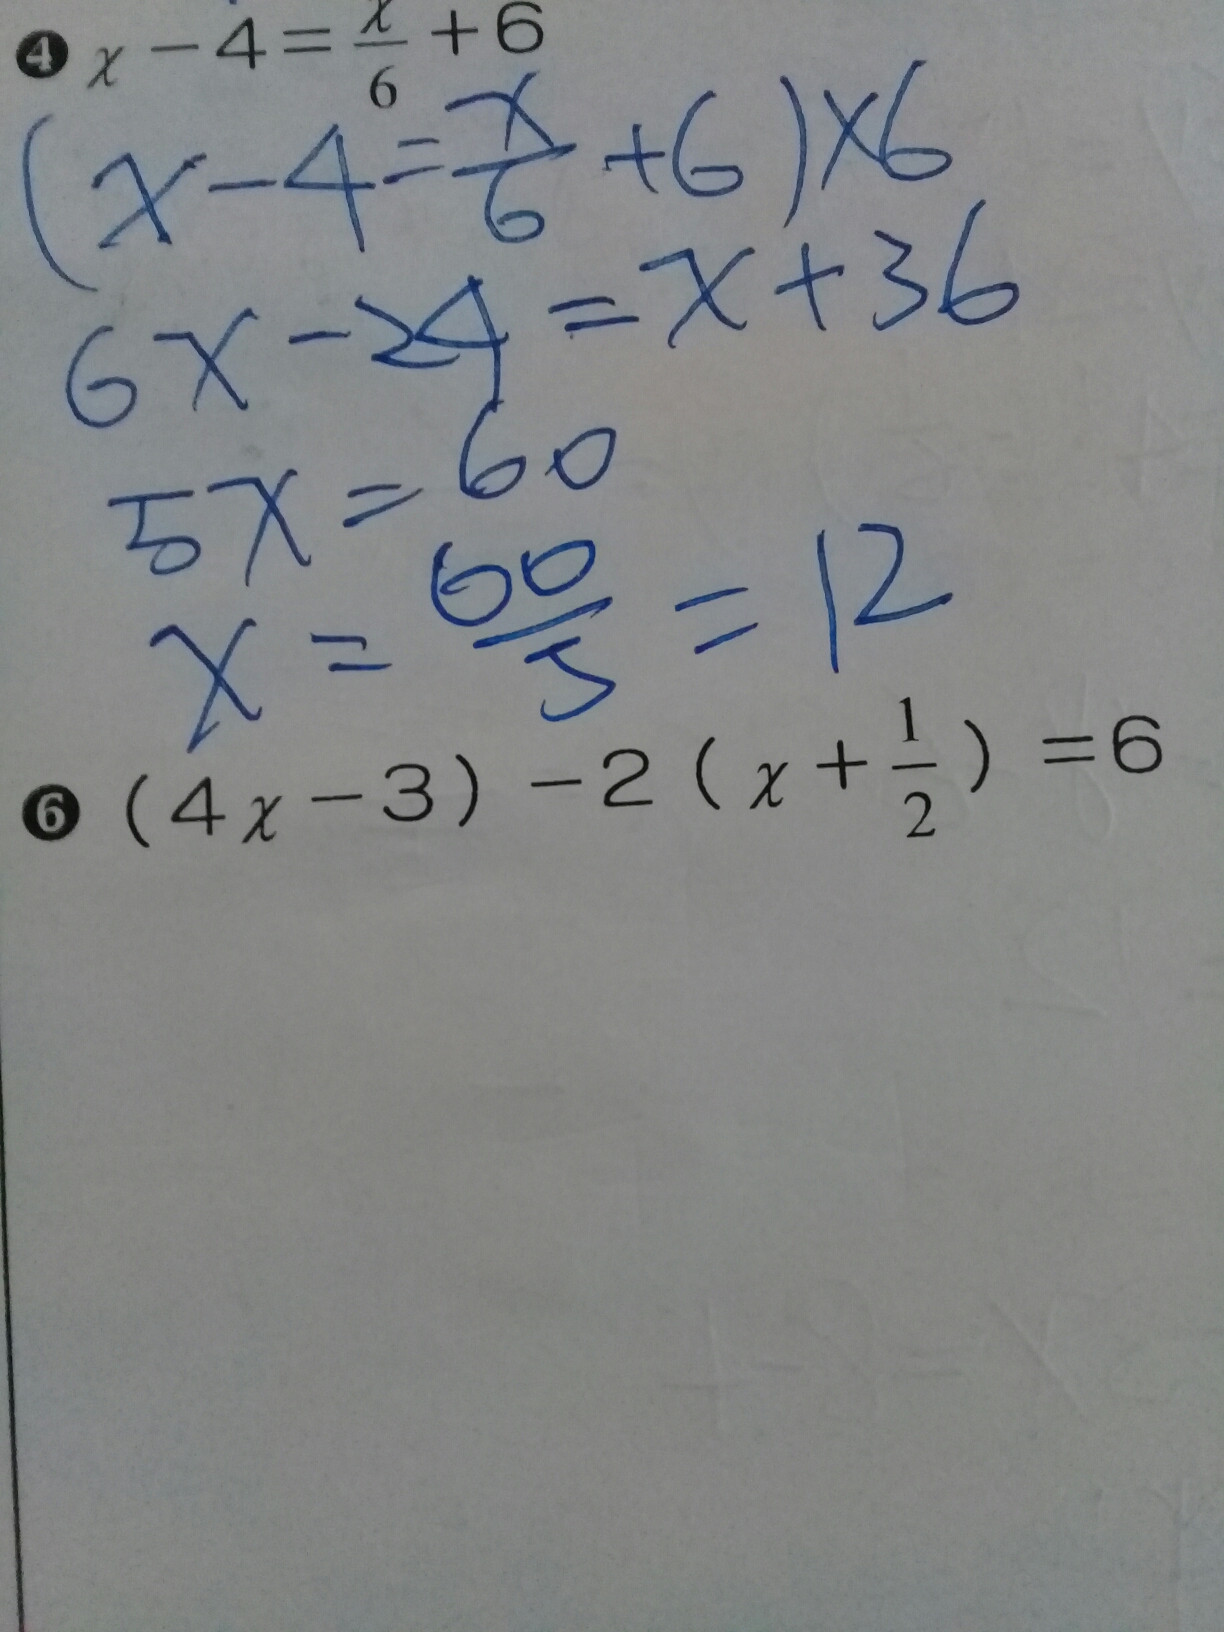 ❹ x－4＝x/6＋6
(x－4＝x/6＋6)×6
6x－24＝x＋36
5x＝60
x＝60/5＝12
❻ (4x－3)－2(x＋1/2)＝6